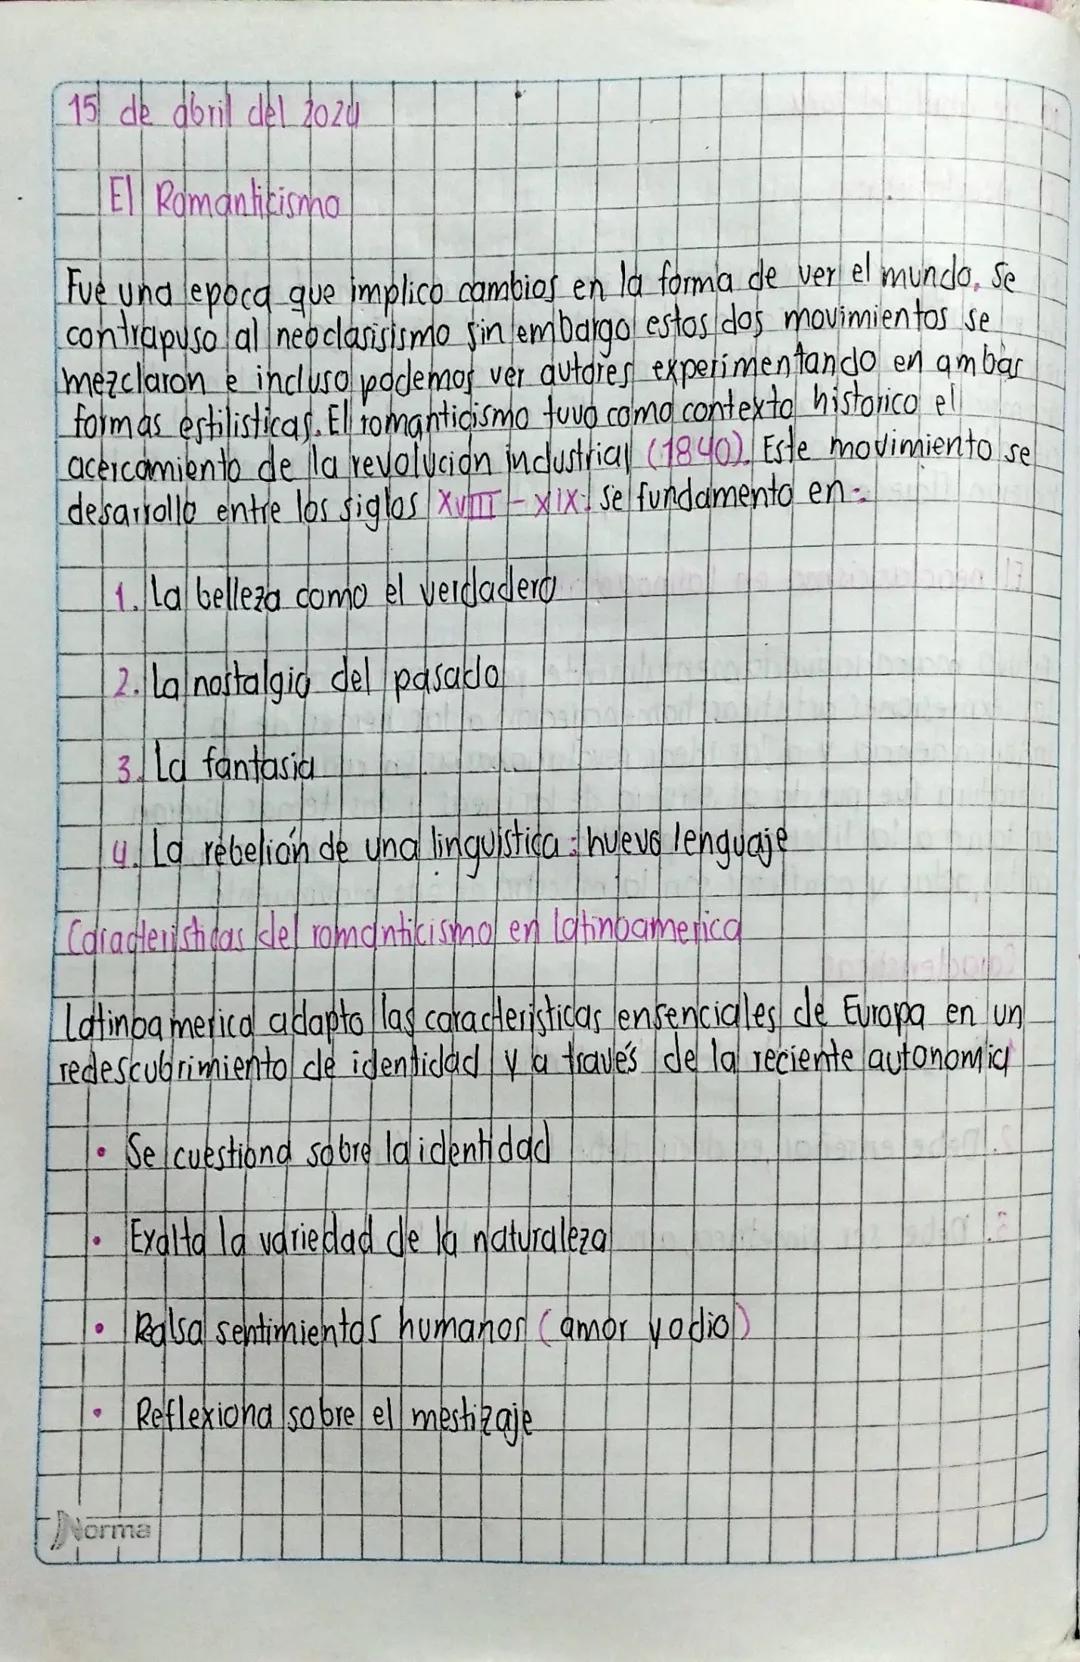 15 de abril del 2024
El Romanticismo
Fue una epoca que implico cambios en la forma de ver el mundo, Se
contrapuso al neoclasisismo sin embargo estos dos movimientos se
mezclaron e incluso podemos ver autores experimentando en ambas
formas estilisticas. El romanticismo tuvo como contexto historico el
acercamiento de la revolucion industrial (1840). Este movimiento se
desarrollo entre los siglos XVIII - XIX: se fundamento en:
1. La belleza como el verdadero
2. La nostalgia del pasado
3. La fantasia
4. La rebelión de una linguistica: nuevo lenguaje
Caracteristicas del romanticismo en latinoamerica
Latinoamerica adapto las caracteristicas ensenciales de Europa en un
redescubrimiento de identidad y a través de la reciente autonomia
• Se cuestiona sobre la identidad
• Exalta la variedad de la naturaleza
• Ralsa sentimientos humanos (amor y odio)
• Reflexiona sobre el mestizaje
Norma